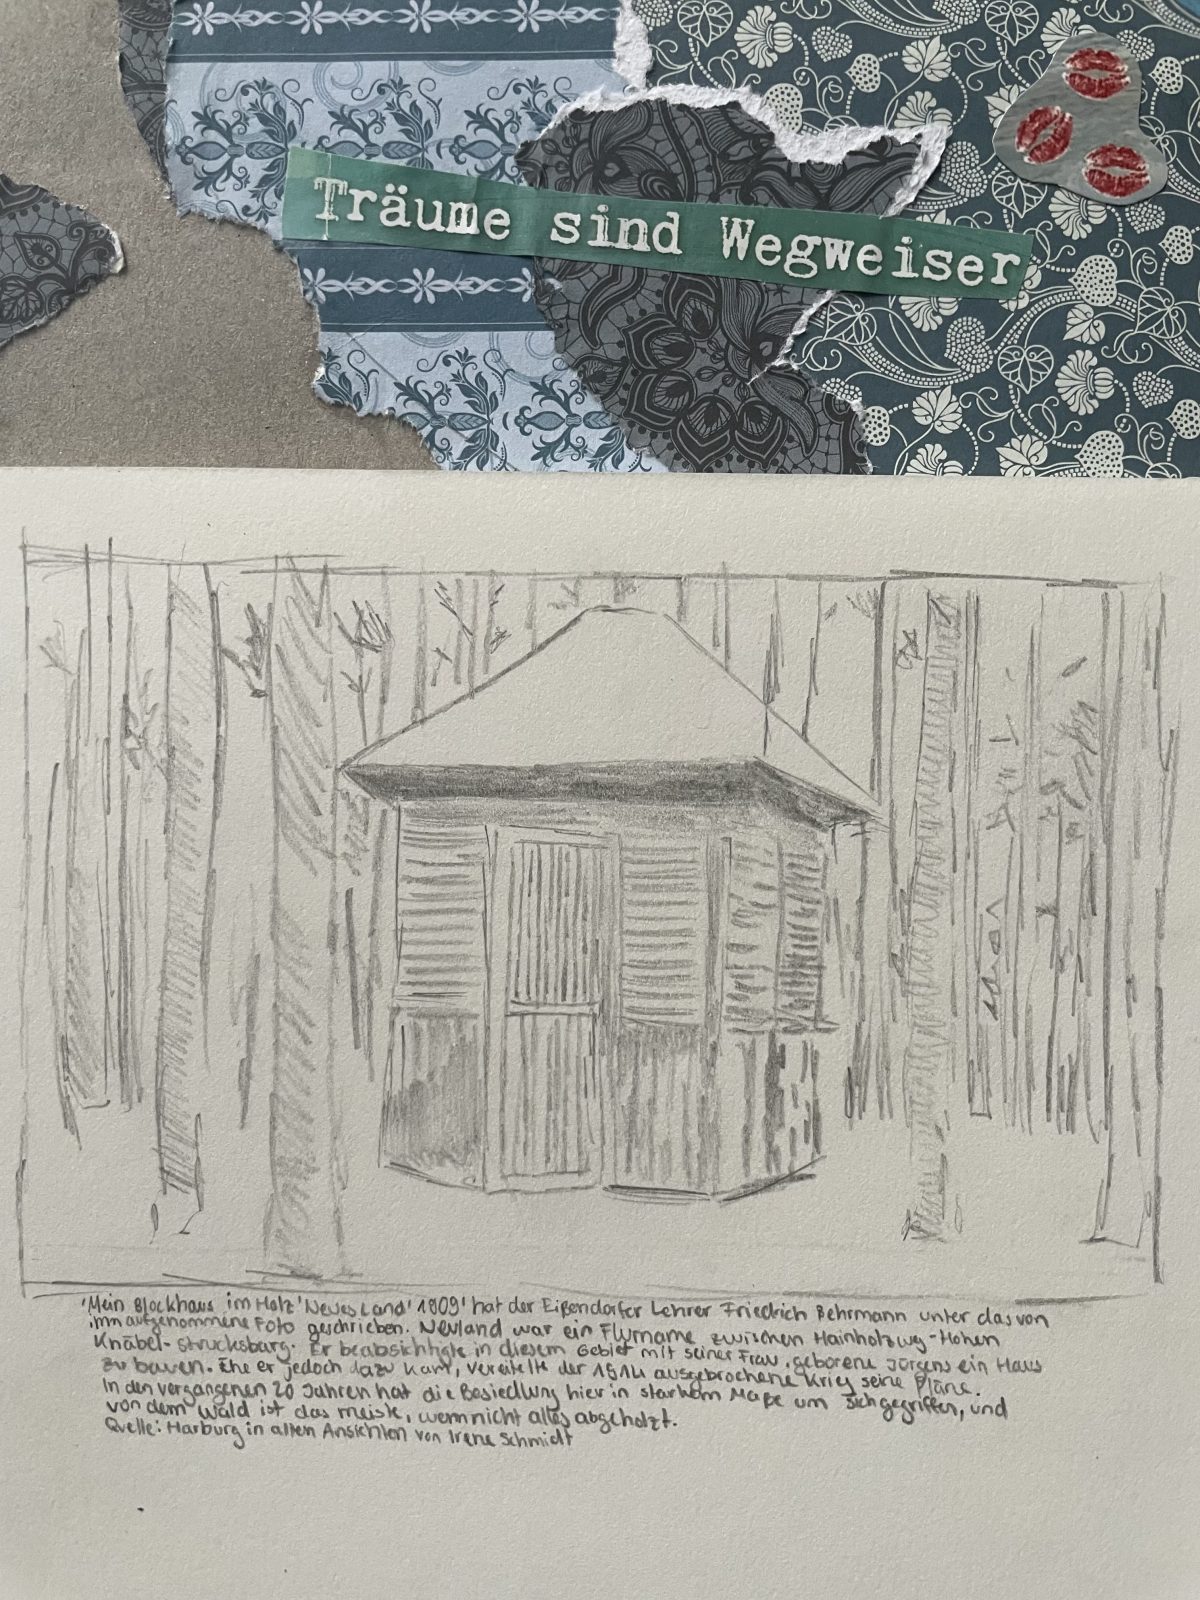 Träume sind Wegweiser
'Mein Blockhaus im Holz 'Neues Land' 1909' hat der Eißendorfer Lehrer Friedrich Behrmann unter das von
ihm aufgenommene Foto geschrieben. Neuland war ein Flurname zwischen Hainholzweg-Hohen
Knäbel-Strucksbarg. Er beabsichtigte in diesem Gebiet mit seiner Frau, geborene Jürgens ein Haus
zu bauen. Ehe er jedoch dazu kam, vereitelte der 1914 ausgebrochene Krieg seine Pläne.
In den vergangenen 20 Jahren hat die Besiedlung hier in starkem Maße um sich gegriffen, und
von dem Wald ist das meiste, wenn nicht alles abgeholzt.
Quelle: Harburg in alten Ansichten von Irene Schmidt